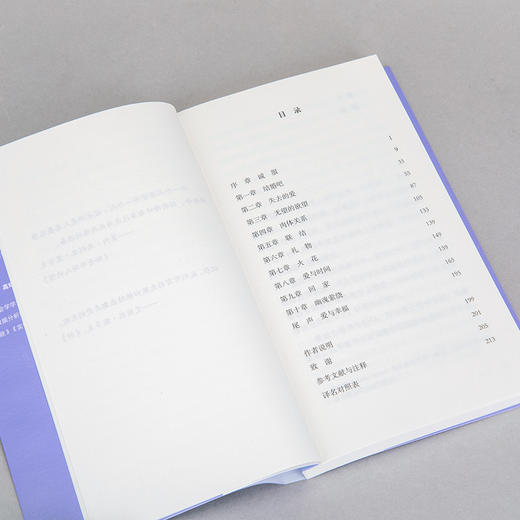 目 录
序 章 诚 服
第一章 结婚吧
第二章 失去的爱
第三章 无望的欲望
第四章 肉体关系
第五章 联 结
第六章 礼 物
第七章 火 花
第八章 爱与时间
第九章 回 家
第十章 幽魂萦绕
尾 声 爱与幸福
作者说明
致 谢
参考文献与注释
译名对照表
1
9
33
87
105
133
139
149
165
195
199
201
205
213
会学学
数据分析